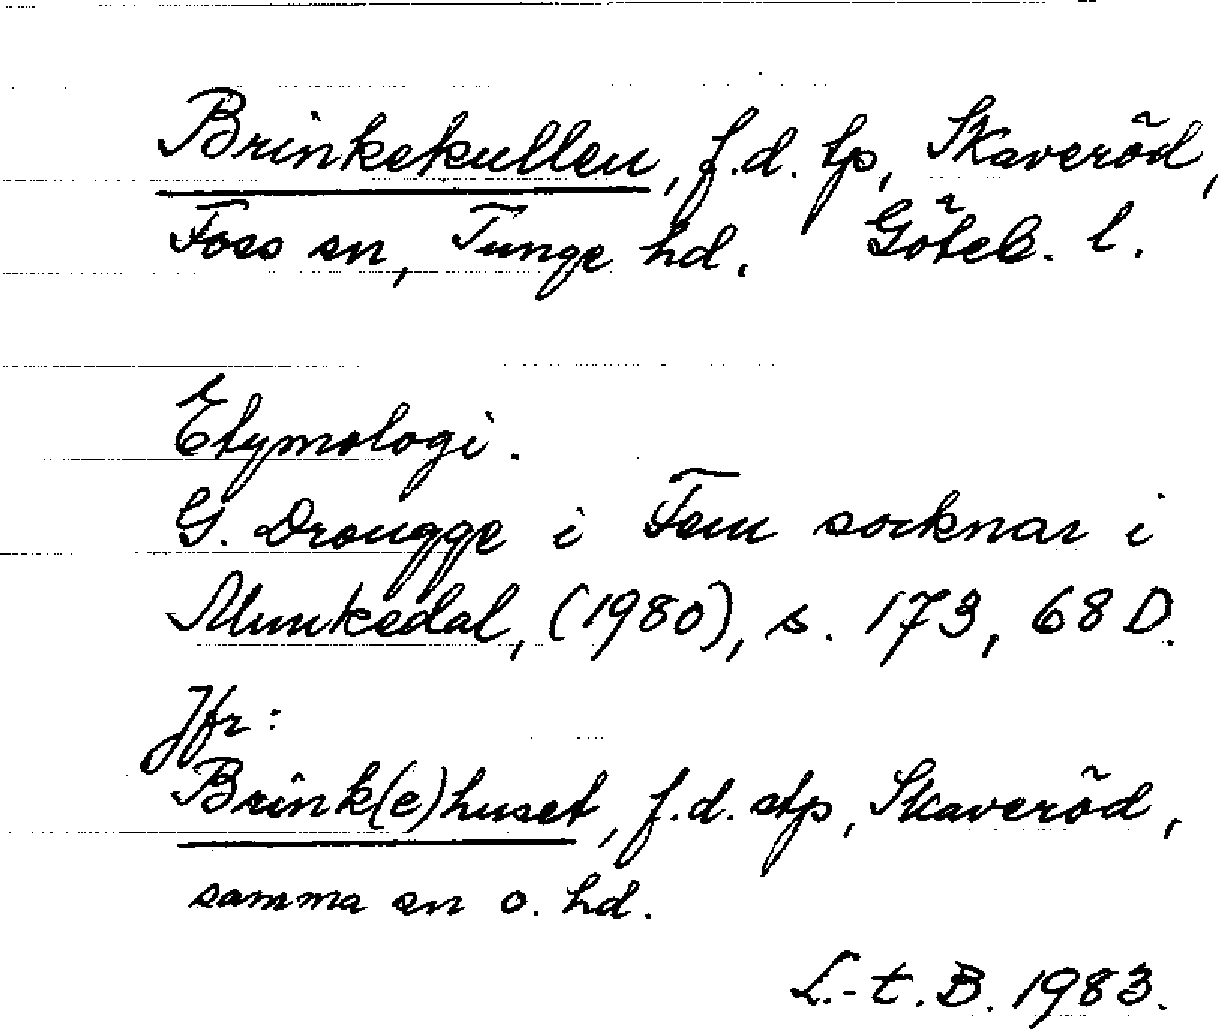 Brinkekullen, f.d. lp, Skaveröd,
Foss sn, Tunge hd. Göteb. l.
Etymologi.
G. Drougge i Fem socknar i
Munkedal, (1980), s. 173, 68 D.
Jfr:
Brink(e)huset, f.d. stp, Skaveröd,
samma sn o. hd.
L.-t. B. 1983.